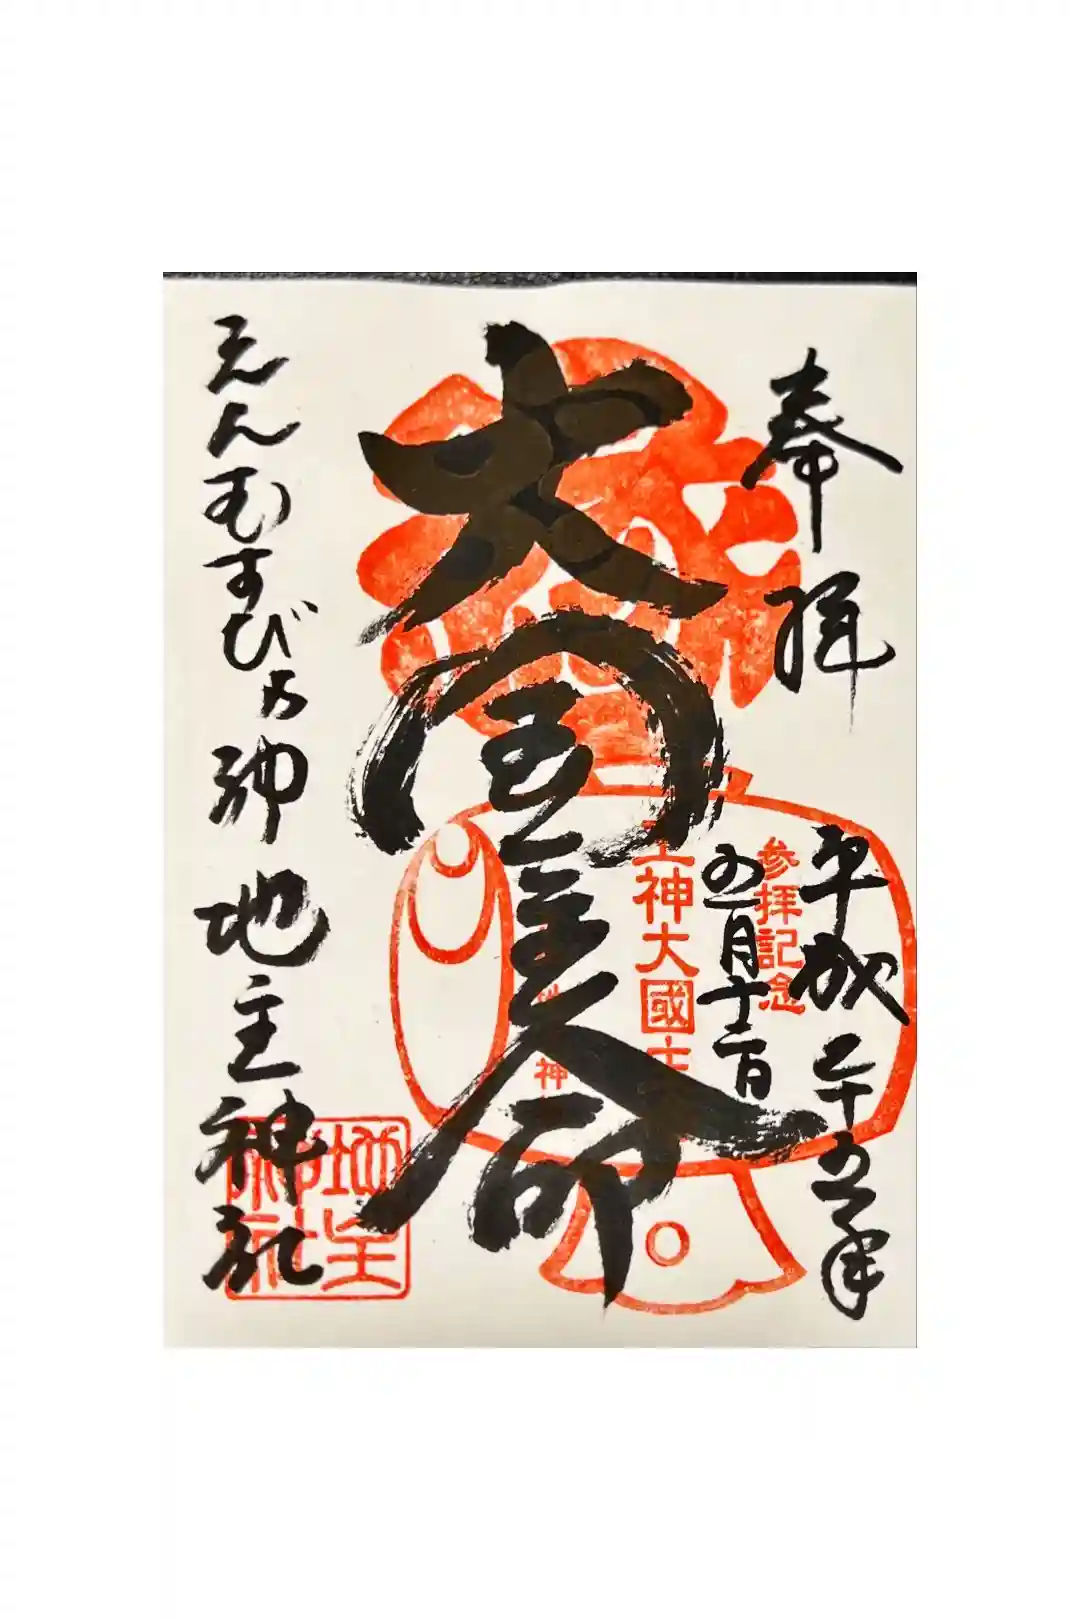 奉拝
平成二十五年
五月十二日
参拝記念
大国主命
主神大國主
神
えんむすびの神 地主神社
地主神社